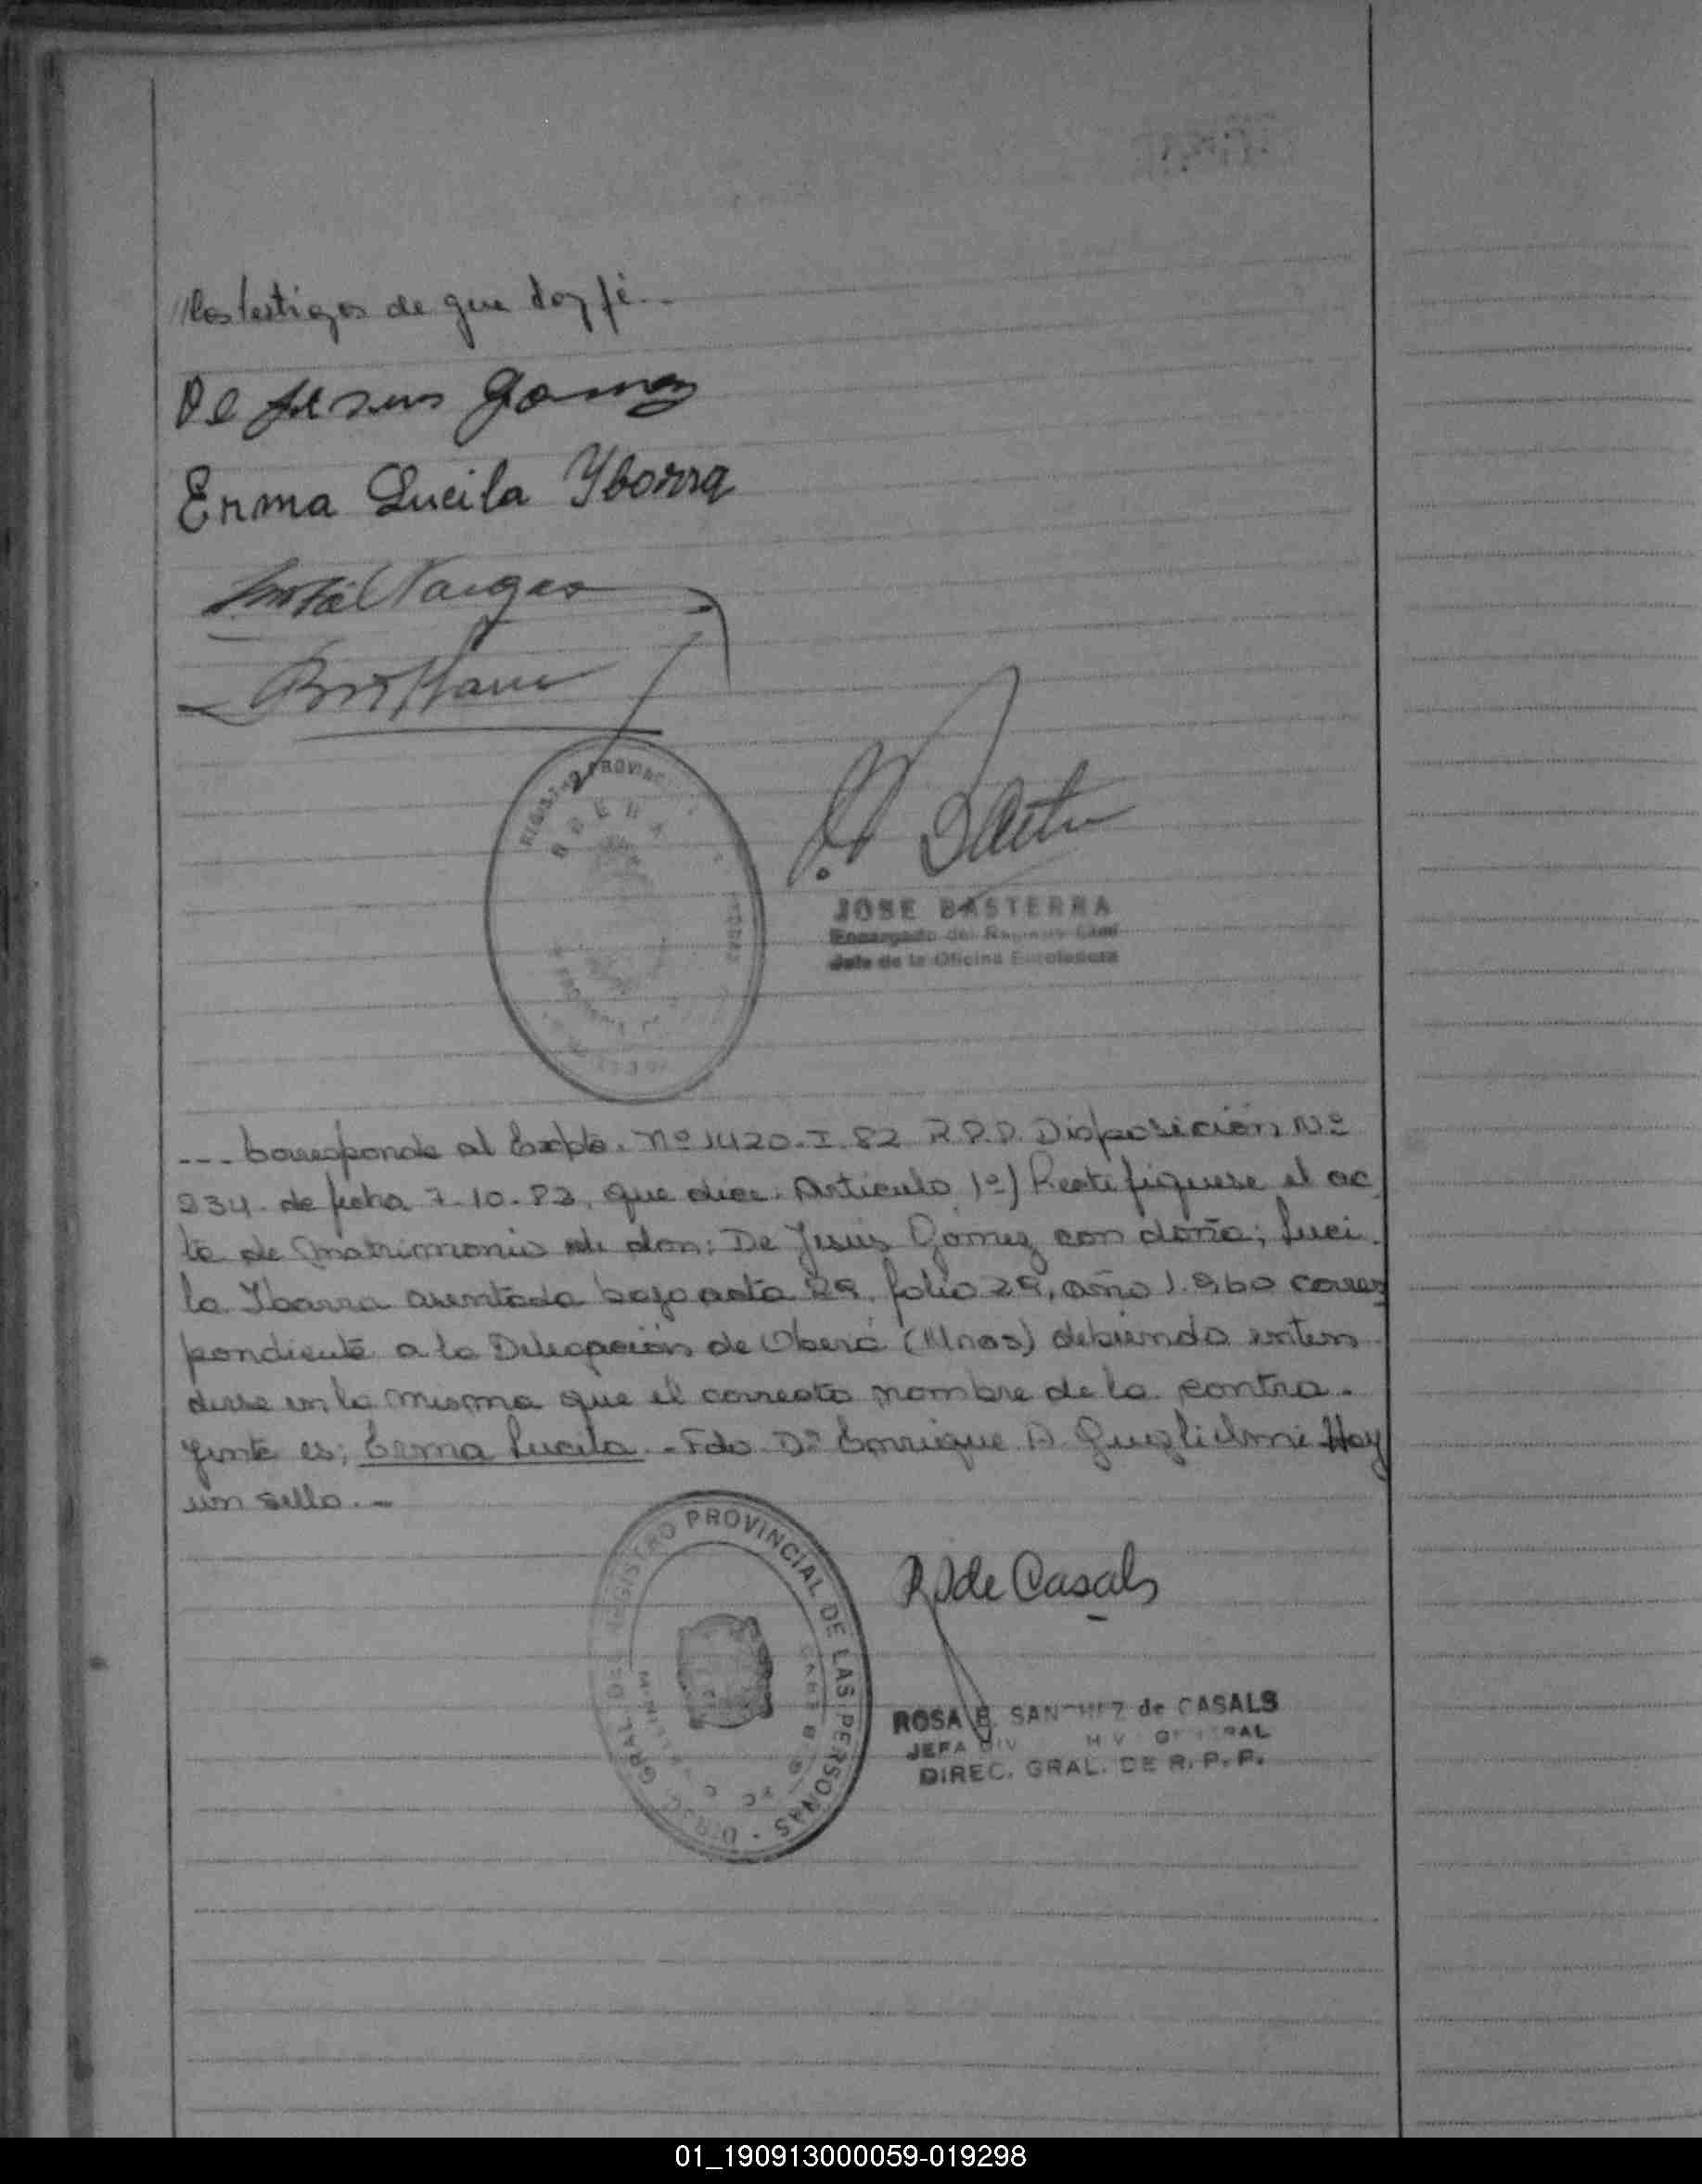 //los testigos de que doy fé.-
De Jesus Gomez
Erma Lucila Yborra
Vargas
REGISTRO PROVINC
OBERA
JOSE BASTERRA
Encargado del Registro Civil
Jefe de la Oficina Enroladora
--- Corresponde al Expte. Nº 1420-I-82 R.P.P. Disposición Nº
934 de fecha 7-10-83, que dice: Articulo 1º) Rectifiquese el ac
ta de Matrimonio de don: De Jesus Gómez con doña; Luci
la Ibarra asentada bajo acta 29, folio 29, año 1.960 corres
pondiente a la Delegación de Oberá (Mnes) debiendo enten
derse en la misma que el correcto nombre de la contra-
yente es; Erma Lucila.- Fdo Dn Enrique A. Guglielmi Hay
un sello.-
DIREC. GRAL. DE REGISTRO PROVINCIAL DE LAS PERSONAS
R S de Casals
ROSA E. SANCHEZ de CASALS
JEFA DIV
DIREC. GRAL. DE R. P. P.
01_190913000059-019298